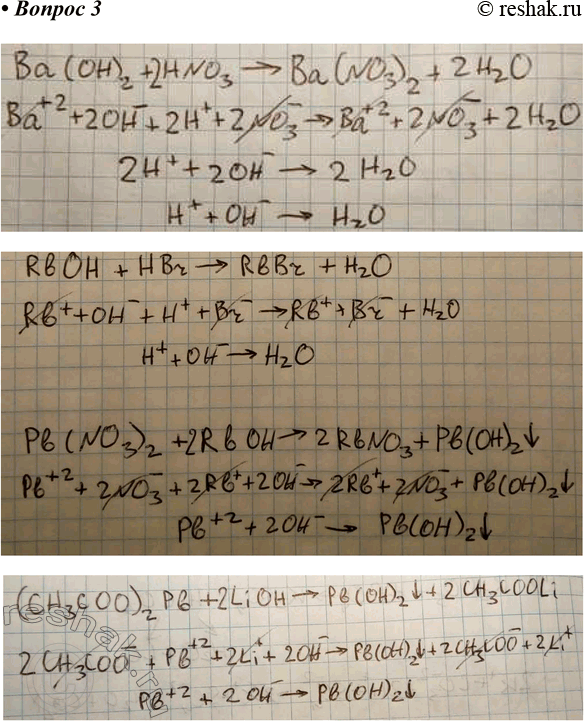 • Вопрос 3
© reshak.ru
Ba(OH)₂ + 2HNO₃ → Ba(NO₃)₂ + 2H₂O
Ba⁺² + 2OH⁻ + 2H⁺ + 2NO₃⁻ → Ba⁺² + 2NO₃⁻ + 2H₂O
2H⁺ + 2OH⁻ → 2H₂O
H⁺ + OH⁻ → H₂O
RbOH + HBr → RbBr + H₂O
Rb⁺ + OH⁻ + H⁺ + Br⁻ → Rb⁺ + Br⁻ + H₂O
H⁺ + OH⁻ → H₂O
Pb(NO₃)₂ + 2RbOH → 2RbNO₃ + Pb(OH)₂↓
Pb⁺² + 2NO₃⁻ + 2Rb⁺ + 2OH⁻ → 2Rb⁺ + 2NO₃⁻ + Pb(OH)₂↓
Pb⁺² + 2OH⁻ → Pb(OH)₂↓
(CH₃COO)₂Pb + 2LiOH → Pb(OH)₂↓ + 2CH₃COOLi
2CH₃COO⁻ + Pb⁺² + 2Li⁺ + 2OH⁻ → Pb(OH)₂↓ + 2CH₃COO⁻ + 2Li⁺
Pb⁺² + 2OH⁻ → Pb(OH)₂↓
reshak.ru